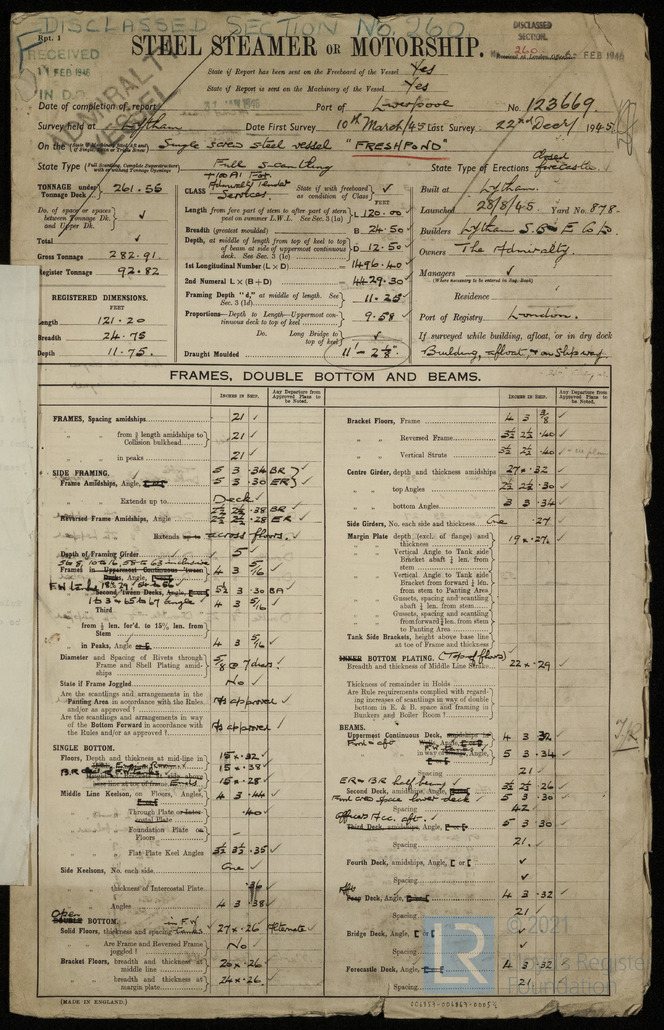 DISCLASSED SECTION No. 260
Rpt. 1
RECEIVED
11 FEB 1946
IN D.O.
DISCLASSED
SECTION.
260
FEB 1946
ADMIRALTY
VESSEL
STEEL STEAMER OR MOTORSHIP.
State if Report has been sent on the Freeboard of the Vessel Yes
State if Report is sent on the Machinery of the Vessel Yes
Date of completion of report Port of Liverpool No. 123669
Survey held at Lytham Date First Survey 10th March/45 Last Survey 22nd Decr 1945
On the Single screw steel vessel "FRESHPOND"
State Type Full Scantling State Type of Erections Closed forecastle.
TONNAGE under Tonnage Deck 261.56
Do. of space or spaces between Tonnage Dk. and Upper Dk.
Total
Gross Tonnage 282.91
Register Tonnage 92.82
REGISTERED DIMENSIONS.
FEET
Length 121.20
Breadth 24.75
Depth 11.75.
CLASS +100A1 For Admiralty Tender Services. State if with freeboard as condition of Class
FEET
Length from fore part of stem to after part of stern post on summer L.W.L. See Sec. 3 (1a) L 120.00
Breadth (greatest moulded) B 24.50
Depth, at middle of length from top of keel to top of beam at side of uppermost continuous deck. See Sec. 3 (1c) D 12.50
1st Longitudinal Number (L × D) 1496.40
2nd Numeral L × (B + D) 4429.30
Framing Depth "d," at middle of length. See Sec. 3 (1d) 11.25
Proportions—Depth to Length—Uppermost continuous deck to top of keel 9.58
Do. Long Bridge to top of keel
Draught Moulded 11'-2⅞".
Built at Lytham.
Launched 28/8/45 Yard No. 878.
Builders Lytham S.B & E Co Ld.
Owners The Admiralty.
Managers
(Where necessary to be entered in Reg. Book)
Residence
Port of Registry London.
If surveyed while building, afloat, or in dry dock
Building, afloat, & on Slipway.
FRAMES, DOUBLE BOTTOM AND BEAMS.
INCHES IN SHIP. Any Departure from Approved Plans to be Noted.
FRAMES, Spacing amidships 21
" " from ⅗ length amidships to Collision bulkhead 21
" " in peaks 21
SIDE FRAMING.
Frame Amidships, Angle, 5 3 .34 BR
5 3 .30 ER
" " Extends up to Deck
Reversed Frame Amidships, Angle 2½ 2½ .38 BR
2½ 2½ .28 ER
" " Extends across floors.
Depth of Framing Girder 5
Frames in Uppermost Continuous 'tween Decks, Angle, 4 3 5/16
" " Second 'tween Decks, Angle, 5½ 3 .30 BA
" " Third 4 3 5/16
" " from ⅕ len. for'd. to 15% len. from Stem
" " in Peaks, Angle 4 3 5/16
Diameter and Spacing of Rivets through Frame and Shell Plating amidships 5/8 @ 7 diars.
State if Frame Joggled No
Are the scantlings and arrangements in the Panting Area in accordance with the Rules and/or as approved? As approved
Are the scantlings and arrangements in way of the Bottom Forward in accordance with the Rules and/or as approved? As approved
SINGLE BOTTOM.
Floors, Depth and thickness at mid-line in 15 × .32
15 × .38
15 × .28
Middle Line Keelson, on Floors, Angles, 4 3 .44
" " Through Plate .40
" " Foundation Plate on Floors
" " Flat Plate Keel Angles 3½ 3½ .35
Side Keelsons, No. each side One
" " thickness of Intercostal Plate .36
" " Angles 4 3 .38
Open BOTTOM.
Solid Floors, thickness and spacing in F.W tanks 27 × .26 Alternate
" " Are Frame and Reversed Frame joggled? No
Bracket Floors, breadth and thickness at middle line 20 × .26
" " breadth and thickness at margin plate 24 × .26
(MADE IN ENGLAND.)
INCHES IN SHIP. Any Departure from Approved Plans to be Noted.
Bracket Floors, Frame 4 3 3/8
" " Reversed Frame 3½ 2½ .40
" " Vertical Struts 3½ 2½ .40
Centre Girder, depth and thickness amidships 27 × .32
" " top Angles 2½ 2½ .30
" " bottom Angles 3 3 .34
Side Girders, No. each side and thickness One .27
Margin Plate depth (excl. of flange) and thickness 19 × .27
" " Vertical Angle to Tank side Bracket abaft ¼ len. from stem
" " Vertical Angle to Tank side Bracket from forward ¼ len. from stem to Panting Area
" " Gussets, spacing and scantling abaft ¼ len. from stem
" " Gussets, spacing and scantling from forward ¼ len. from stem to Panting Area
Tank Side Brackets, height above base line at toe of Frame and thickness
INNER BOTTOM PLATING. (Top of floors)
Breadth and thickness of Middle Line Strake 22 × .29
Thickness of remainder in Holds
Are Rule requirements complied with regarding increases of scantlings in way of double bottom in E. & B. space and framing in Bunkers and Boiler Room?
BEAMS.
Uppermost Continuous Deck, Ford & aft 4 3 .32
" " in way of 5 3 .34
Spacing 21
ER & BR half beams
Second Deck, amidships, Angle, 3½ 2½ .26
5 3 .30
Spacing 42
Officers Acc. aft.
Third Deck, amidships, Angle, 5 3 .30
Spacing 21.
Fourth Deck, amidships, Angle, [ or [
Spacing
Poop Deck, Angle, 4 3 .32
Spacing 21
Bridge Deck, Angle, [ or [
Spacing
Forecastle Deck, Angle, 4 3 .32
Spacing 21
LR
© 2021
Lloyd's Register
Foundation